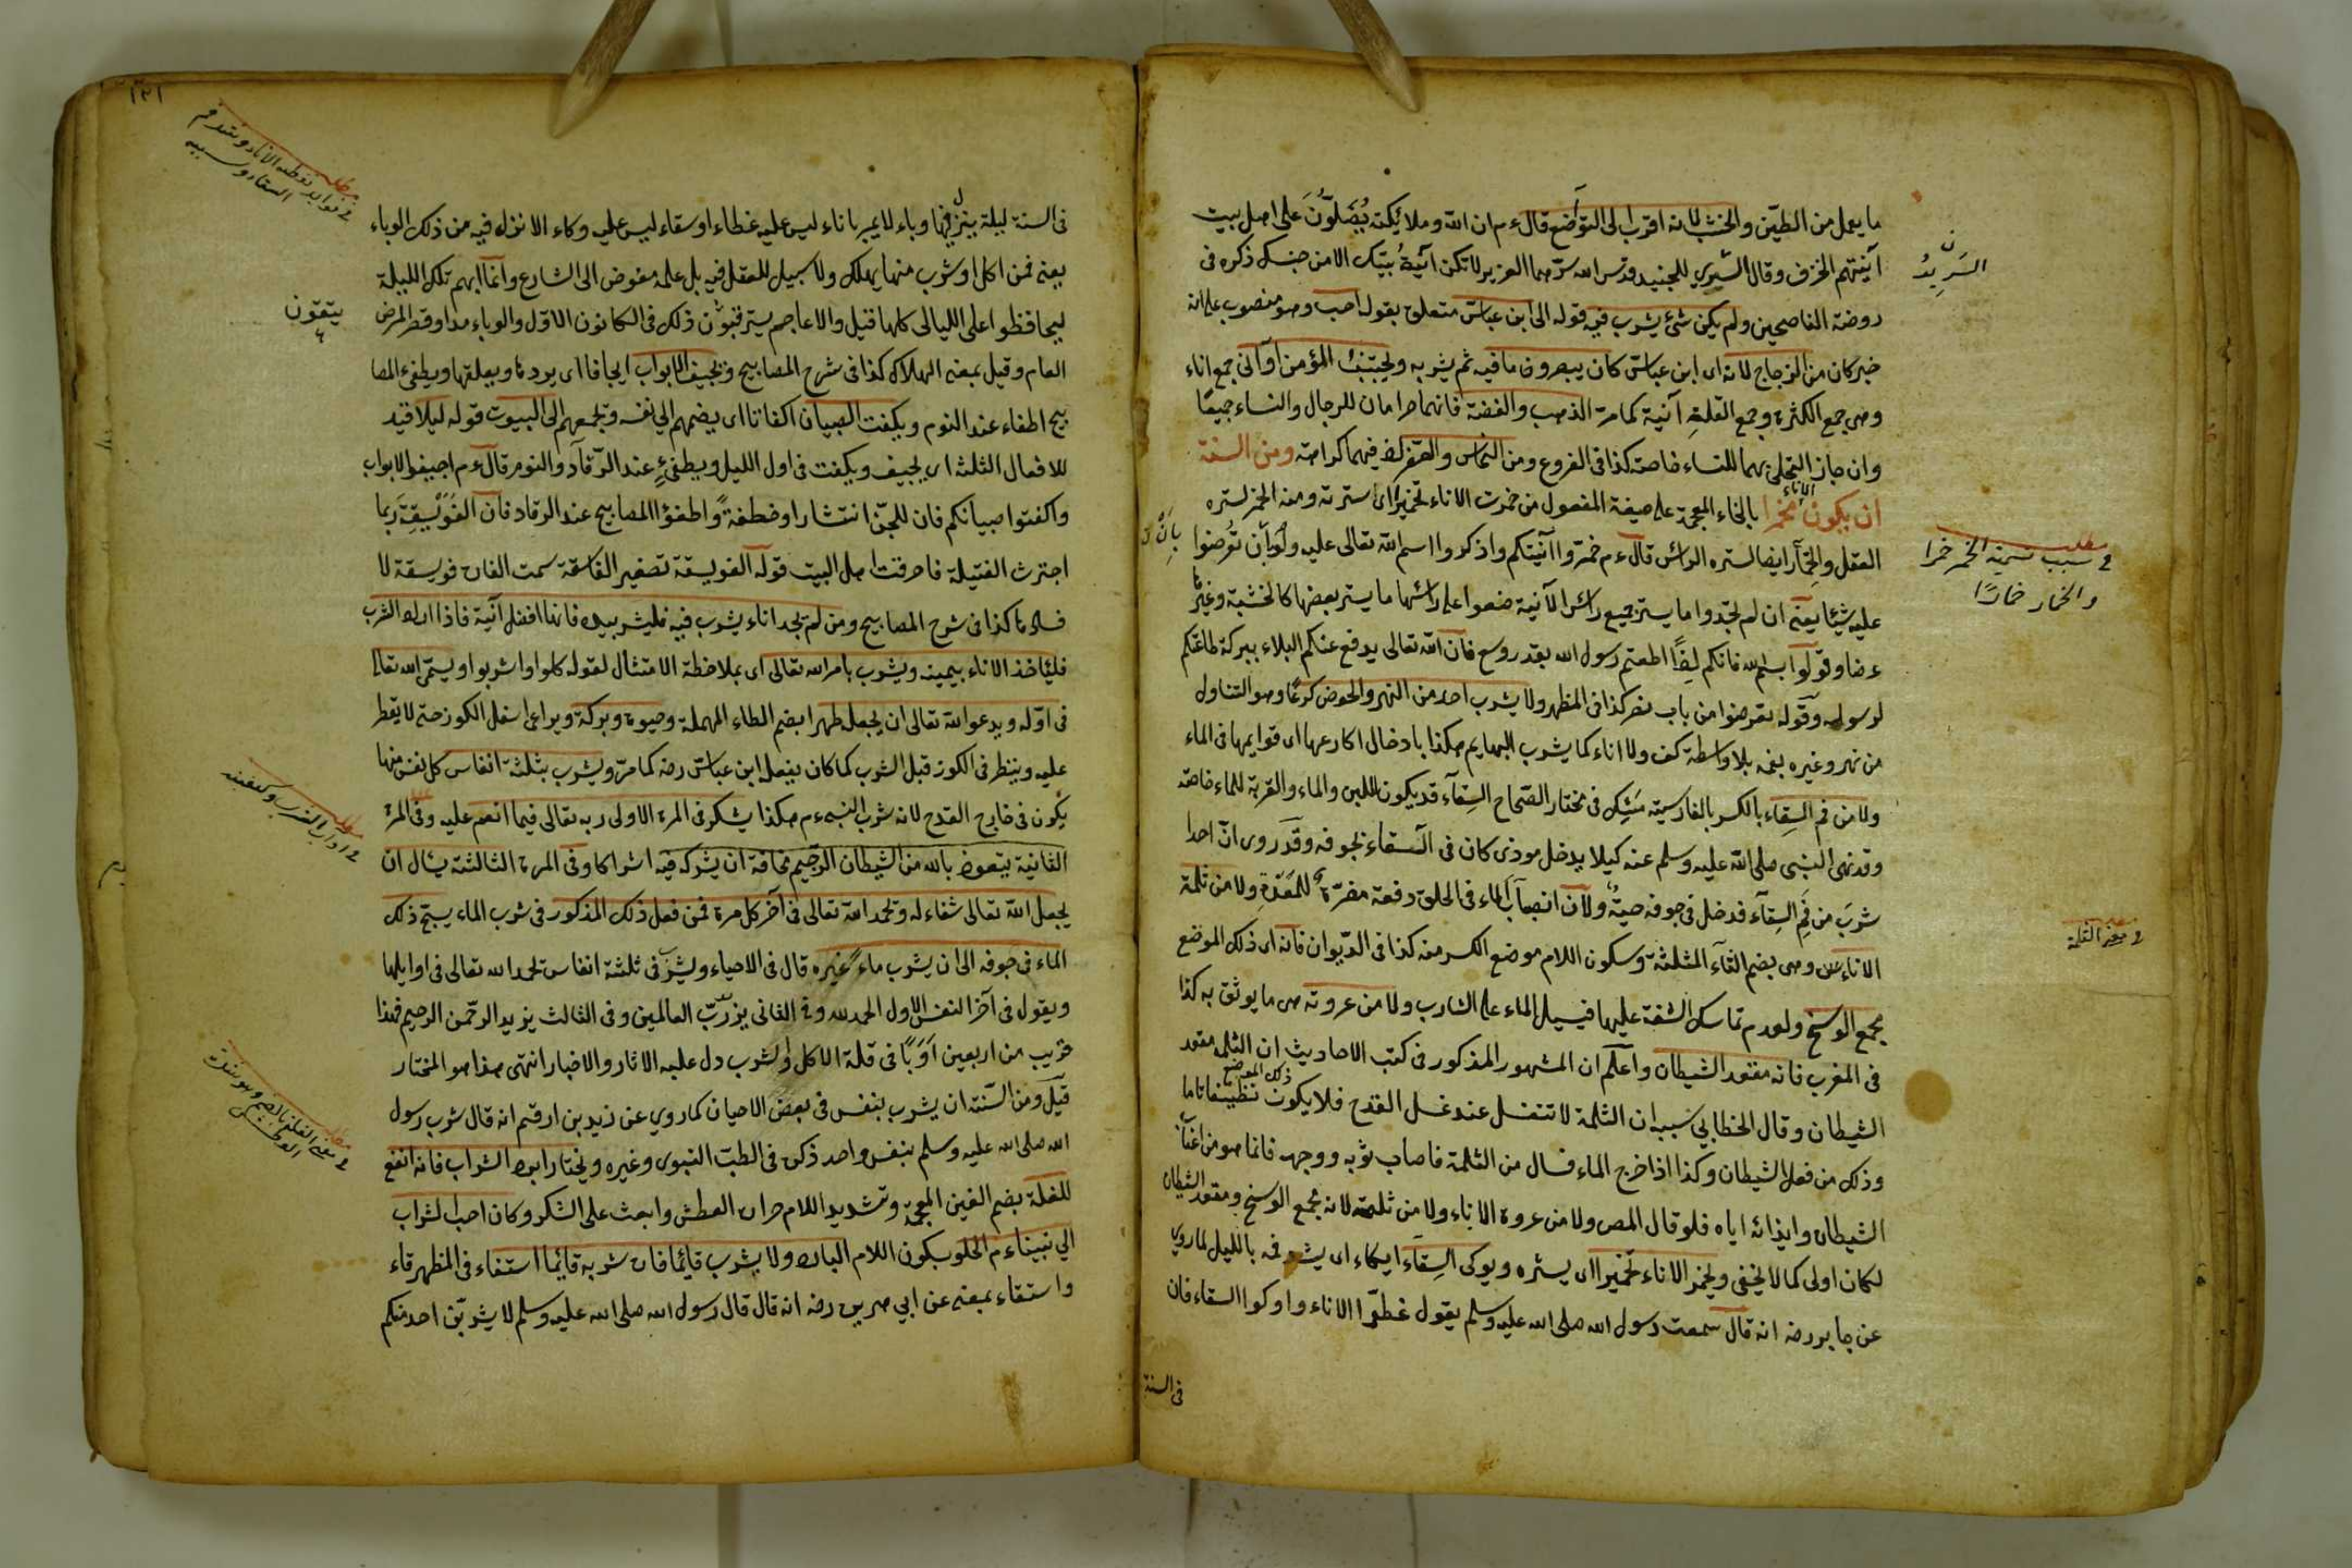 ما يعمل من الطين والخشب لانه اقرب الى التواضع قال ءم ان الله وملائكته يصلون على اهل بيت
آنيتهم الخزف وقال السري للجنيد قدس الله سرهما العزيز لا تكن آنية بيتك الا من جنسك ذكره في
روضة الناصحين ولم يكن شئ يشرب فيه قوله الى ابن عباس متعلق بقوله احب وهو منصوب على انه
خبر كان من الزجاج لانه اى ابن عباس كان يبصرون ما فيه ثم يشربه ويجتنب المؤمن اوانى جمع اناء
وهى جمع الكثرة وجمع القلة آنية كما مر الذهب والفضة فانهما حرامان للرجال والنساء جميعا
وان جاز التحلى بهما للنساء خاصة كذا فى الفروع ومن النحاس والصفر لان فيهما كراهة ومن السنة
ان يكون الاناء مخمرا بالخاء المعجمة على صيغة المفعول من خمرت الاناء تخميرا اى سترته ومنه الخمر لستره
العقل والخمار ايضا لستره الرأس قال ءم خمروا آنيتكم واذكروا اسم الله تعالى عليه ولو بان تعرضوا
عليه شيئا يعنى ان لم تجدوا ما يستر جميع رأس الآنية ضعوا على رأسها ما يستر بعضها كالخشبة وغيرها
عرضا وقولوا بسم الله فانكم اذا اطعتم رسول الله بقدر وسع فان الله تعالى يدفع عنكم البلاء ببركة طاعتكم
لرسوله وقوله تعرضوا من باب نصر كذا فى المظهر ولا يشرب احد من النهر والحوض كرعا وهو التناول
من نهر وغيره بفمه بلا واسطة كف ولا اناء كما يشرب البهايم هكذا بادخال اكارعها اى قوايمها فى الماء
ولا من فم السقاء بالكسر بالفارسية مشك فى مختار الصحاح السقاء قد يكون للبن والماء والقربة للماء خاصة
وقد نهى النبى صلى الله عليه وسلم عنه كيلا يدخل موذى كان فى السقاء بجوفه وقد روى ان احدا
شرب من فم السقاء فدخل فى جوفه حية ولان انصباب الماء فى الحلق دفعة مضرة للمعدة ولا من ثلمة
الاناء وهى بضم الثاء المثلثة وسكون اللام موضع الكسر منه كذا فى الديوان فانه اى ذلك الموضع
مجمع الوسخ ولعدم تماسك الشفة عليها فيسيل الماء على الشارب ولا من عروته هى ما يوثق به كذا
فى المغرب فانه مقعد الشيطان واعلم ان المشهور المذكور فى كتب الاحاديث ان الثلمة مقعد
الشيطان وقال الخطابي سببه ان الثلمة لا تنغسل عند غسل القدح فلا يكون ذلك الموضع نظيفا تاما
وذلك من فعل الشيطان وكذا اذا خرج الماء فسال من الثلمة فاصاب ثوبه ووجهه فانما هو من
الشيطان وايذائه اياه فلو قال المص ولا من عروة الاناء ولا من ثلمته لانه مجمع الوسخ ومقعد الشيطان
لكان اولى كما لا يخفى ويخمر الاناء تخميرا اى يستره ويوكى السقاء ايكاء اى يشد فمه بالليل لما روي
عن جابر رضه انه قال سمعت رسول الله صلى الله عليه وسلم يقول غطوا الاناء واوكوا السقاء فان
فى السنة
مطلب
في سبب تسمية الخمر خمرا
والخمار خمارا
في معنى الثلمة
١٣١
فى السنة ليلة ينزل فيها وباء لا يمر باناء ليس عليه غطاء او سقاء ليس عليه وكاء الا نزل فيه من ذلك الوباء
يعنى فمن اكل او شرب منها يهلك ولا سبيل للعقل فيه بل علمه مفوض الى الشارع وانما ابهم تلك الليلة
ليحافظوا على الليالى كلها قيل والاعاجم يترقبون ذلك فى الكانون الاول والوباء مدا وقصر المرض
العام وقيل بمعنى الهلاك كذا فى شرح المصابيح ويجيف الابواب ايجافا اى يردها ويغلقها ويطفئ المصا
بيح اطفاء عند النوم ويكفت الصبيان اكفاتا اى يضمهم الى نفسه وتجمعهم الى البيوت قوله ليلا قيد
للافعال الثلثة اى يجيف ويكفت فى اول الليل ويطفئ عند الرقاد والنوم قال ءم اجيفوا الابواب
واكفتوا صبيانكم فان للجن انتشارا وخطفة واطفؤا المصابيح عند الرقاد فان الفويسقة ربما
اجترت الفتيلة فاحرقت اهل البيت قوله الفويسقة تصغير الفاسقة سمت الفارة فويسقة لا
فسادها كذا فى شرح المصابيح ومن لم يجد اناء يشرب فيه فليشرب بيده فانها افضل آنية فاذا اراد الشرب
فليأخذ الاناء بيمينه ويشرب بامر الله تعالى اى بملاحظة الامتثال لقوله كلوا واشربوا ويسمى الله تعالى
فى اوله ويدعو الله تعالى ان يجعل طهرا بضم الطاء المهملة وحيوة وبركة ويراعى اسفل الكوز حتى لا يقطر
عليه وينظر فى الكوز قبل الشرب كما كان يفعل ابن عباس رضه كما مر ويشرب بثلثة انفاس كل نفس منها
يكون فى خارج القدح لانه شرب النبى ءم هكذا يشكر فى المرة الاولى ربه تعالى فيما انعم عليه وفى المرة
الثانية يتعوذ بالله من الشيطان الرجيم مخافة ان يشركه فيه اشراكا وفى المرة الثالثة يسأل ان
يجعل الله تعالى شفاء له وتحمد الله تعالى فى آخر كل مرة فمن فعل ذلك المذكور فى شرب الماء يسبح ذلك
الماء فى جوفه الى ان يشرب ماء غيره قال فى الاحياء ويشرب فى ثلثة انفاس تحمد الله تعالى فى اوايلها
ويقول فى آخر النفس الاول الحمد لله وفى الثانى يزيد رب العالمين وفى الثالث يزيد الرحمن الرحيم فهذا
قريب من اربعين ادبا فى قلة الاكل والشرب دل عليه الاثار والاخبار انتهى هذا هو المختار
قيل ومن السنة ان يشرب بنفس فى بعض الاحيان كما روي عن زيد بن ارقم انه قال شرب رسول
الله صلى الله عليه وسلم بنفس واحد ذكره فى الطب النبوى وغيره ويختار ابرد الشراب فانه انفع
للغلة بضم الغين المعجمة وتشديد اللام حرارة العطش وابعث على الشكر وكان احب الشراب
الى نبيناءم الحلو بكون اللام البارد ولا يشرب قائما فان شربه قائما استقاء فى المظهر قاء
واستقاء بمعنى عن ابي هريرة رضه انه قال قال رسول الله صلى الله عليه وسلم لا يشربن احد منكم
يتقون